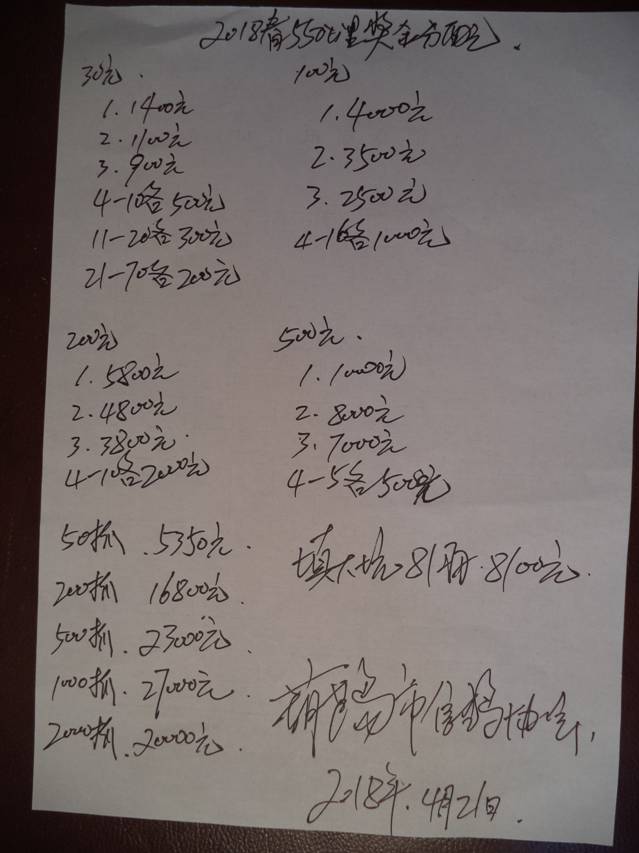 2018春550公里奖金分配.
30元.
1.1400元
2.1100元
3.900元
4-10各500元
11-20各300元
21-70各200元
100元
1.4000元
2.3500元
3.2500元
4-16各1000元
200元
1.5800元
2.4800元
3.3800元.
4-10各2000元
500元.
1.10000元
2.8000元
3.7000元
4-5各500元
50抓.5350元.
200抓 16800元.
500抓.23000元.
1000抓.27000元.
2000抓.20000元.
填大坑 81羽.8100元.
葫芦岛市信鸽协会.
2018年.4月21日.